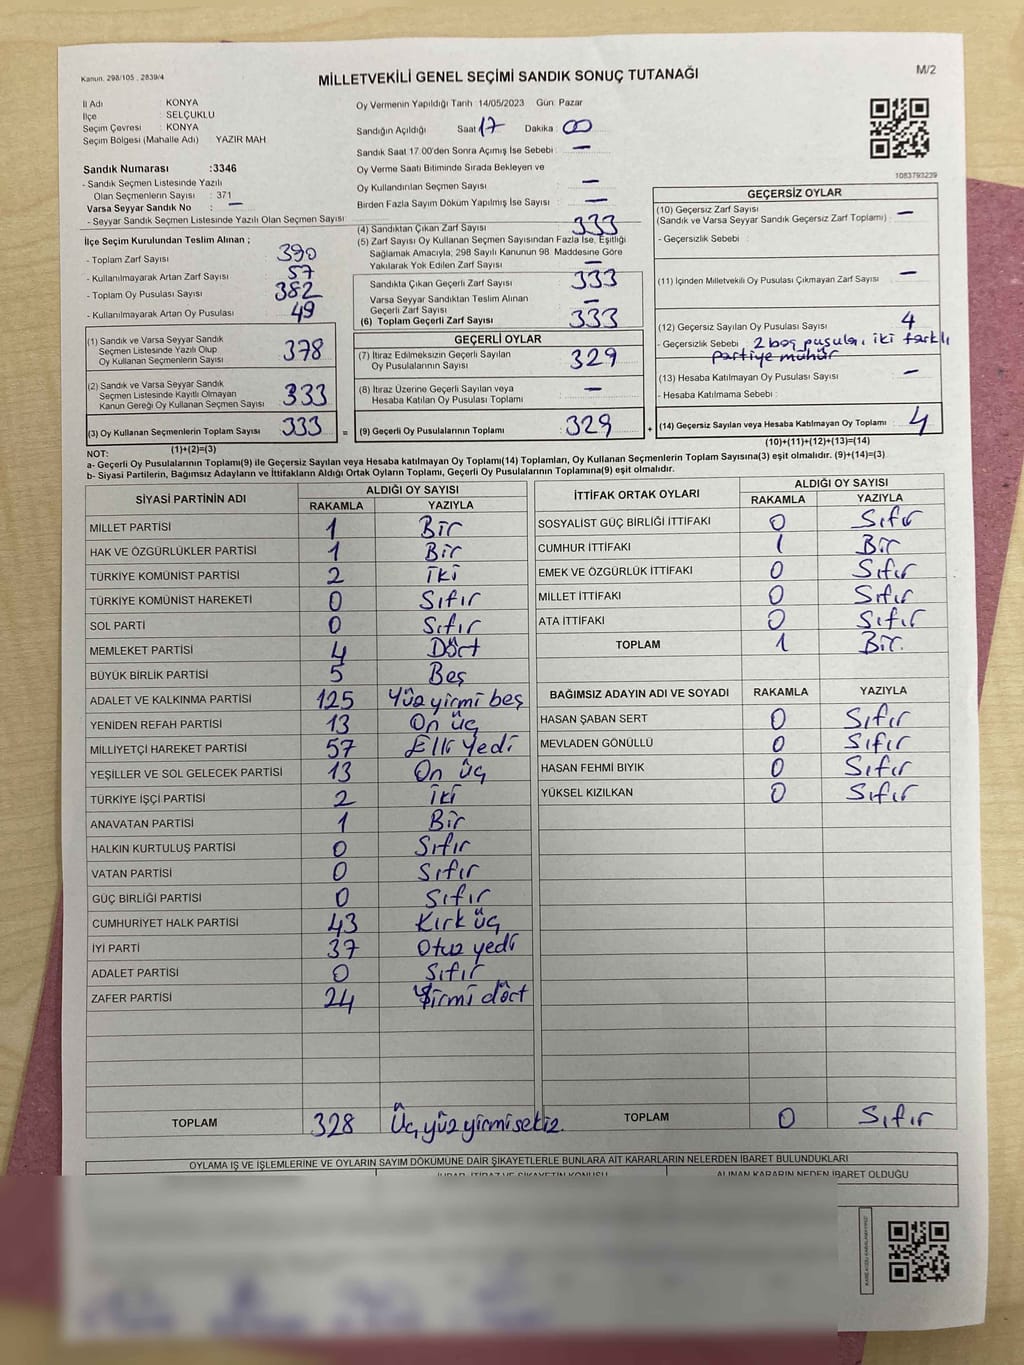 Kanun. 298/105 , 2839/4
MİLLETVEKİLİ GENEL SEÇİMİ SANDIK SONUÇ TUTANAĞI
M/2
İl Adı : KONYA
İlçe : SELÇUKLU
Seçim Çevresi : KONYA
Seçim Bölgesi (Mahalle Adı) YAZIR MAH
Sandık Numarası :3346
- Sandık Seçmen Listesinde Yazılı
Olan Seçmenlerin Sayısı : 371
Varsa Seyyar Sandık No : –
- Seyyar Sandık Seçmen Listesinde Yazılı Olan Seçmen Sayısı
Oy Vermenin Yapıldığı Tarih :14/05/2023 Gün: Pazar
Sandığın Açıldığı Saat 17 Dakika : 00
Sandık Saat 17:00'den Sonra Açımış İse Sebebi : –
Oy Verme Saati Bitiminde Sırada Bekleyen ve
Oy Kullandırılan Seçmen Sayısı : –
Birden Fazla Sayım Döküm Yapılmış İse Sayısı : –
1083793239
İlçe Seçim Kurulundan Teslim Alınan ;
- Toplam Zarf Sayısı : 390
- Kullanılmayarak Artan Zarf Sayısı : 57
- Toplam Oy Pusulası Sayısı : 382
- Kullanılmayarak Artan Oy Pusulası : 49
(1) Sandık ve Varsa Seyyar Sandık
Seçmen Listesinde Yazılı Olup
Oy Kullanan Seçmenlerin Sayısı : 378
(2) Sandık ve Varsa Seyyar Sandık
Seçmen Listesinde Kayıtlı Olmayan
Kanun Gereği Oy Kullanan Seçmen Sayısı : 333
(3) Oy Kullanan Seçmenlerin Toplam Sayısı : 333
(1)+(2)=(3)
(4) Sandıktan Çıkan Zarf Sayısı : 333
(5) Zarf Sayısı Oy Kullanan Seçmen Sayısından Fazla İse, Eşitliği
Sağlamak Amacıyla, 298 Sayılı Kanunun 98. Maddesine Göre
Yakılarak Yok Edilen Zarf Sayısı : –
Sandıkta Çıkan Geçerli Zarf Sayısı : 333
Varsa Seyyar Sandıktan Teslim Alınan
Geçerli Zarf Sayısı : –
(6) Toplam Geçerli Zarf Sayısı : 333
GEÇERLİ OYLAR
(7) İtiraz Edilmeksizin Geçerli Sayılan
Oy Pusulalarının Sayısı : 329
(8) İtiraz Üzerine Geçerli Sayılan veya
Hesaba Katılan Oy Pusulası Toplamı : –
= (9) Geçerli Oy Pusulalarının Toplamı : 329
GEÇERSİZ OYLAR
(10) Geçersiz Zarf Sayısı
(Sandık ve Varsa Seyyar Sandık Geçersiz Zarf Toplamı) : –
- Geçersizlik Sebebi :
(11) İçinden Milletvekili Oy Pusulası Çıkmayan Zarf Sayısı : –
(12) Geçersiz Sayılan Oy Pusulası Sayısı : 4
- Geçersizlik Sebebi : 2 boş pusula, iki farklı
partiye mühür
(13) Hesaba Katılmayan Oy Pusulası Sayısı : –
- Hesaba Katılmama Sebebi :
+ (14) Geçersiz Sayılan veya Hesaba Katılmayan Oy Toplamı : 4
(10)+(11)+(12)+(13)=(14)
NOT:
a- Geçerli Oy Pusulalarının Toplamı(9) ile Geçersiz Sayılan veya Hesaba katılmayan Oy Toplamı(14) Toplamları, Oy Kullanan Seçmenlerin Toplam Sayısına(3) eşit olmalıdır. (9)+(14)=(3)
b- Siyasi Partilerin, Bağımsız Adayların ve İttifakların Aldığı Ortak Oyların Toplamı, Geçerli Oy Pusulalarının Toplamına(9) eşit olmalıdır.
SİYASİ PARTİNİN ADI ALDIĞI OY SAYISI
RAKAMLA YAZIYLA
MİLLET PARTİSİ 1 Bir
HAK VE ÖZGÜRLÜKLER PARTİSİ 1 Bir
TÜRKİYE KOMÜNİST PARTİSİ 2 İki
TÜRKİYE KOMÜNİST HAREKETİ 0 Sıfır
SOL PARTİ 0 Sıfır
MEMLEKET PARTİSİ 4 Dört
BÜYÜK BİRLİK PARTİSİ 5 Beş
ADALET VE KALKINMA PARTİSİ 125 Yüz yirmi beş
YENİDEN REFAH PARTİSİ 13 On üç
MİLLİYETÇİ HAREKET PARTİSİ 57 Elli Yedi
YEŞİLLER VE SOL GELECEK PARTİSİ 13 On üç
TÜRKİYE İŞÇİ PARTİSİ 2 İki
ANAVATAN PARTİSİ 1 Bir
HALKIN KURTULUŞ PARTİSİ 0 Sıfır
VATAN PARTİSİ 0 Sıfır
GÜÇ BİRLİĞİ PARTİSİ 0 Sıfır
CUMHURİYET HALK PARTİSİ 43 Kırk üç
İYİ PARTİ 37 Otuz yedi
ADALET PARTİSİ 0 Sıfır
ZAFER PARTİSİ 24 Yirmi dört
TOPLAM 328 Üç yüz yirmi sekiz.
İTTİFAK ORTAK OYLARI ALDIĞI OY SAYISI
RAKAMLA YAZIYLA
SOSYALİST GÜÇ BİRLİĞİ İTTİFAKI 0 Sıfır
CUMHUR İTTİFAKI 1 Bir
EMEK VE ÖZGÜRLÜK İTTİFAKI 0 Sıfır
MİLLET İTTİFAKI 0 Sıfır
ATA İTTİFAKI 0 Sıfır
TOPLAM 1 Bir.
BAĞIMSIZ ADAYIN ADI VE SOYADI RAKAMLA YAZIYLA
HASAN ŞABAN SERT 0 Sıfır
MEVLADEN GÖNÜLLÜ 0 Sıfır
HASAN FEHMİ BIYIK 0 Sıfır
YÜKSEL KIZILKAN 0 Sıfır
TOPLAM 0 Sıfır
OYLAMA İŞ VE İŞLEMLERİNE VE OYLARIN SAYIM DÖKÜMÜNE DAİR ŞİKAYETLERLE BUNLARA AİT KARARLARIN NELERDEN İBARET BULUNDUKLARI
İHBAR, İTİRAZ VE ŞİKAYETİN KONUSU ALINAN KARARIN NEDEN İBARET OLDUĞU